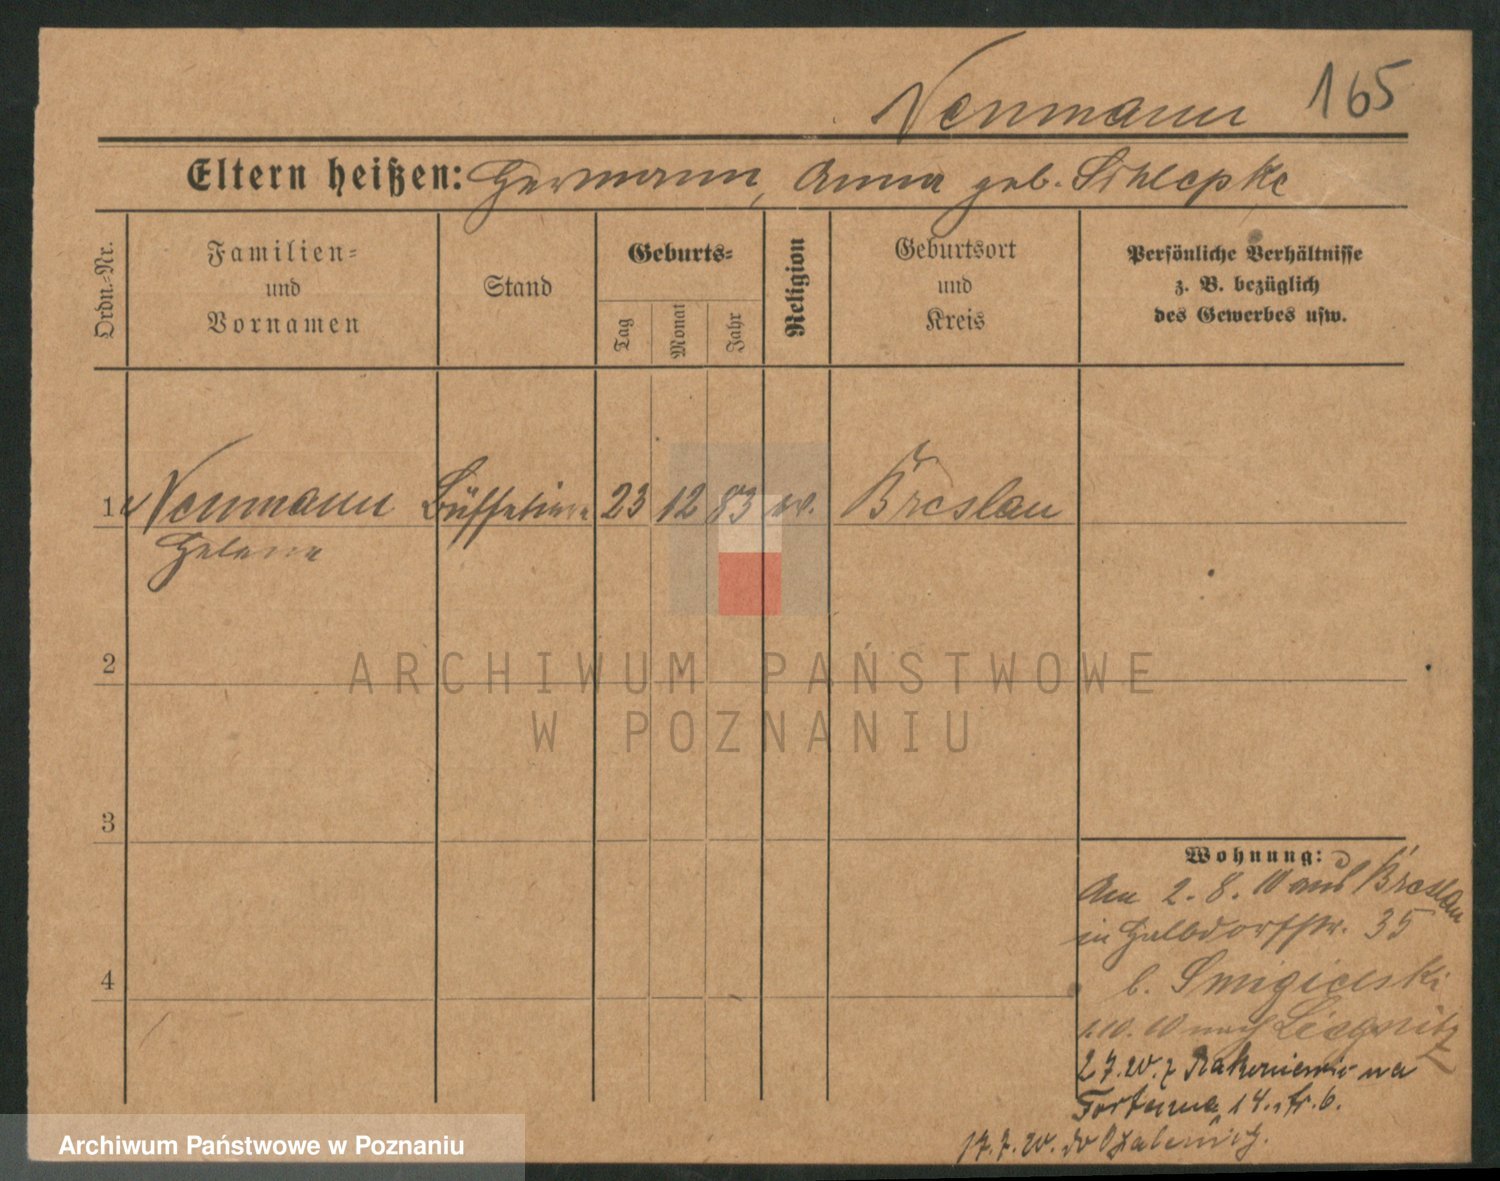 Neumann 165
Eltern heißen: Hermann, Anna geb. Schlepke
Ordn.-Nr.
Familien-
und
Vornamen
Stand
Geburts-
Tag
Monat
Jahr
Religion
Geburtsort
und
Kreis
Persönliche Verhältnisse
z. B. bezüglich
des Gewerbes usw.
1 Neumann Büffetiere 23 12 83 Breslau
Helene
2
3
4
Wohnung:
Am 2. 8. 10 aus Breslau
in Halbdorfstr. 35
b. Smigielski
10 nach Liegnitz
2 7. 20. z na
Forteczna 14.
17. 7. 20. do
ARCHIWUM PAŃSTWOWE
W POZNANIU
Archiwum Państwowe w Poznaniu